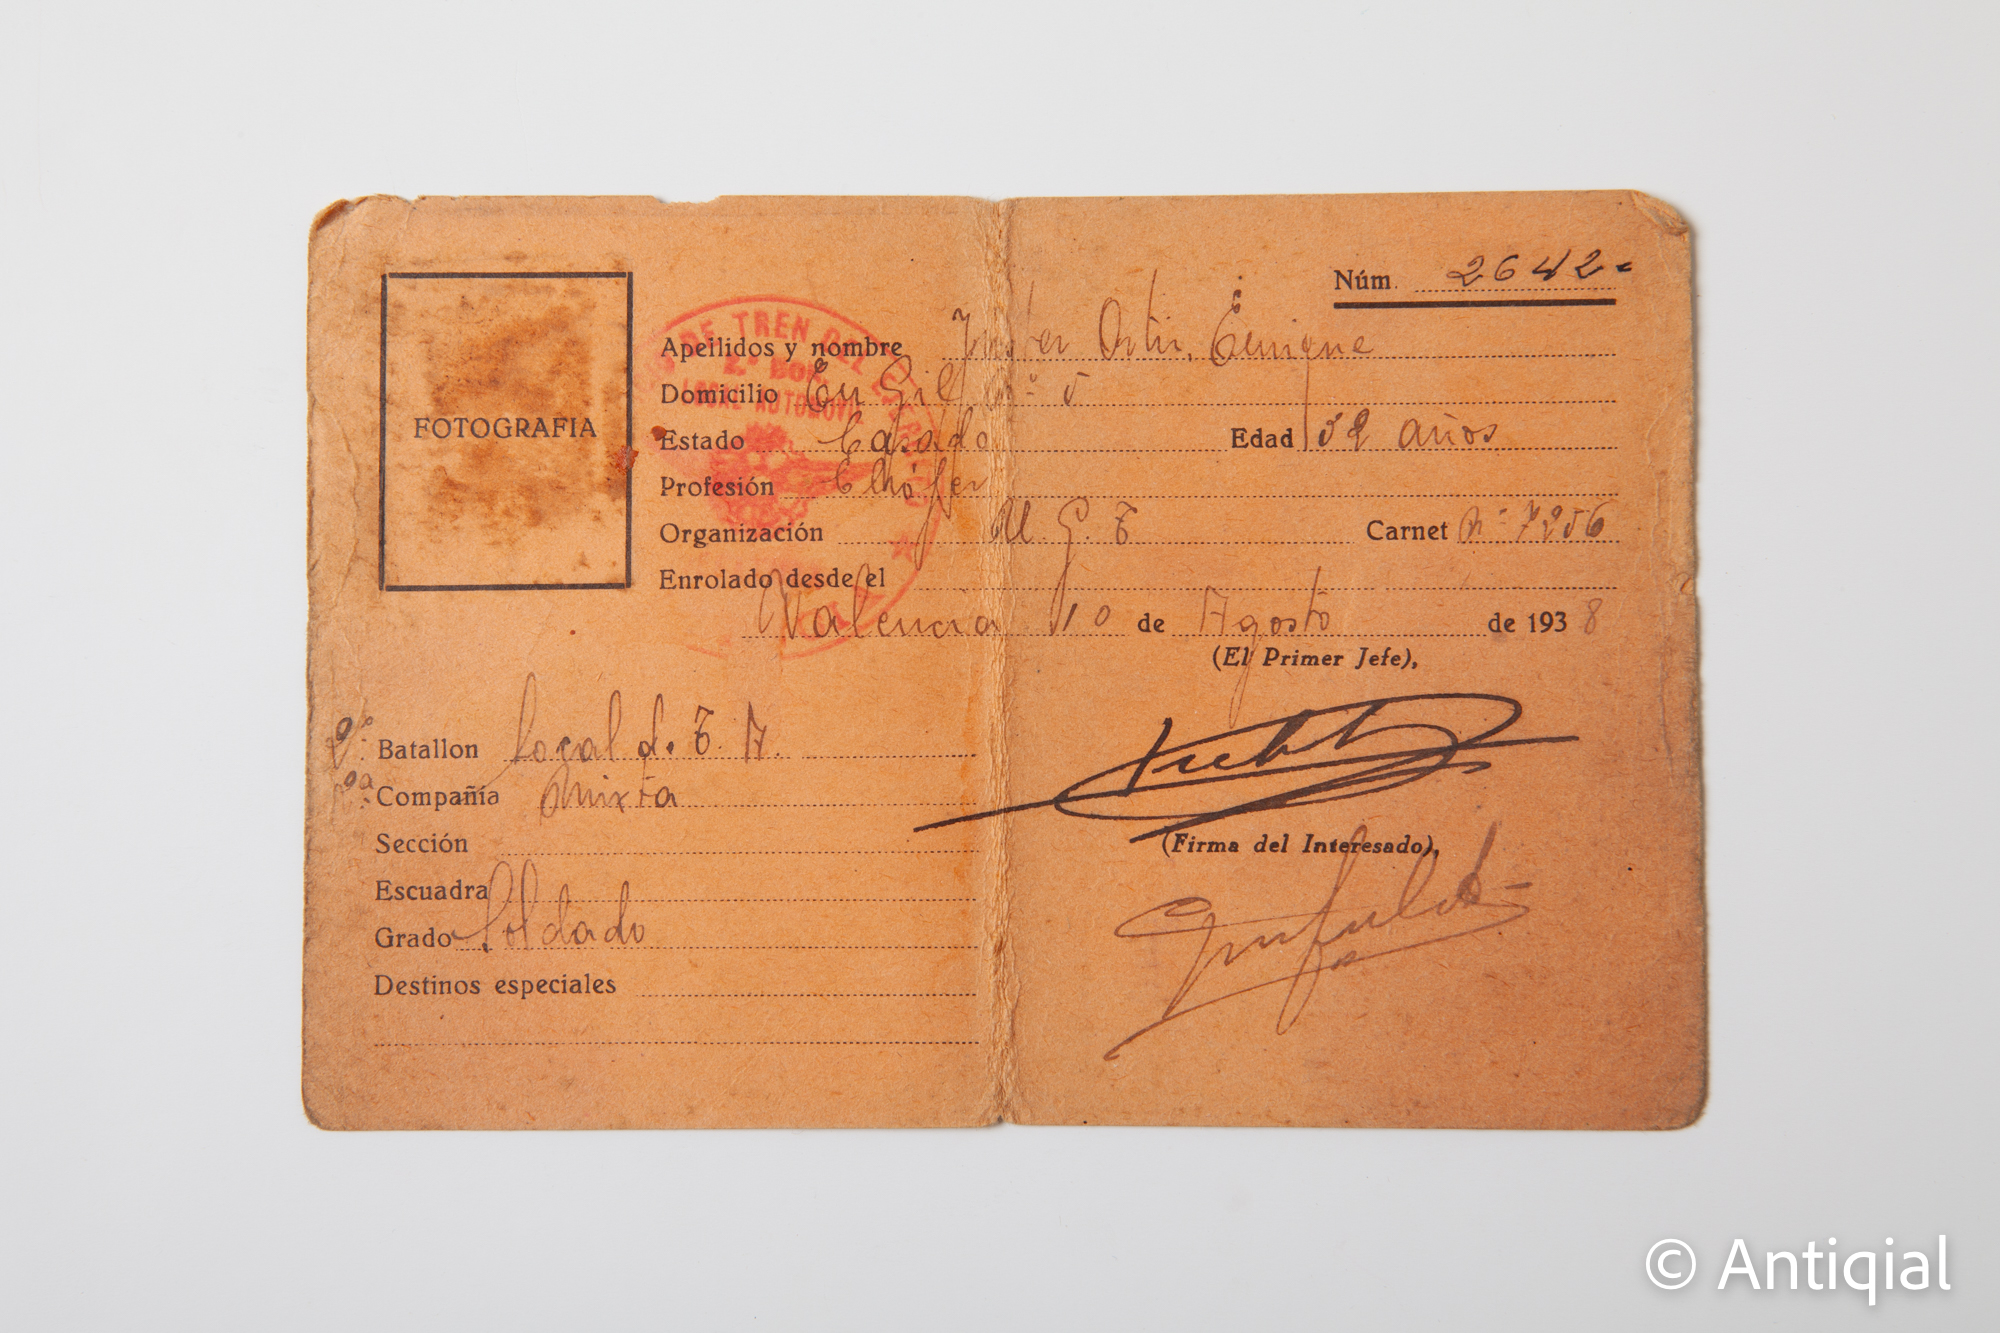 Núm. 2642
FOTOGRAFIA
DE TREN DEL EJERCITO
2.º Bon.
LOCAL AUTOMOVIL
Apellidos y nombre Enrique
Domicilio En Gil nº 5
Estado Casado Edad 32 años
Profesión Chófer
Organización U. G. T Carnet nº 7256
Enrolado desde el
Valencia 10 de Agosto de 1938
(El Primer Jefe),
2º Batallon Local d. T. A.
Compañía Mixta
Sección
(Firma del Interesado),
Escuadra
Grado Soldado
Destinos especiales
© Antiqial